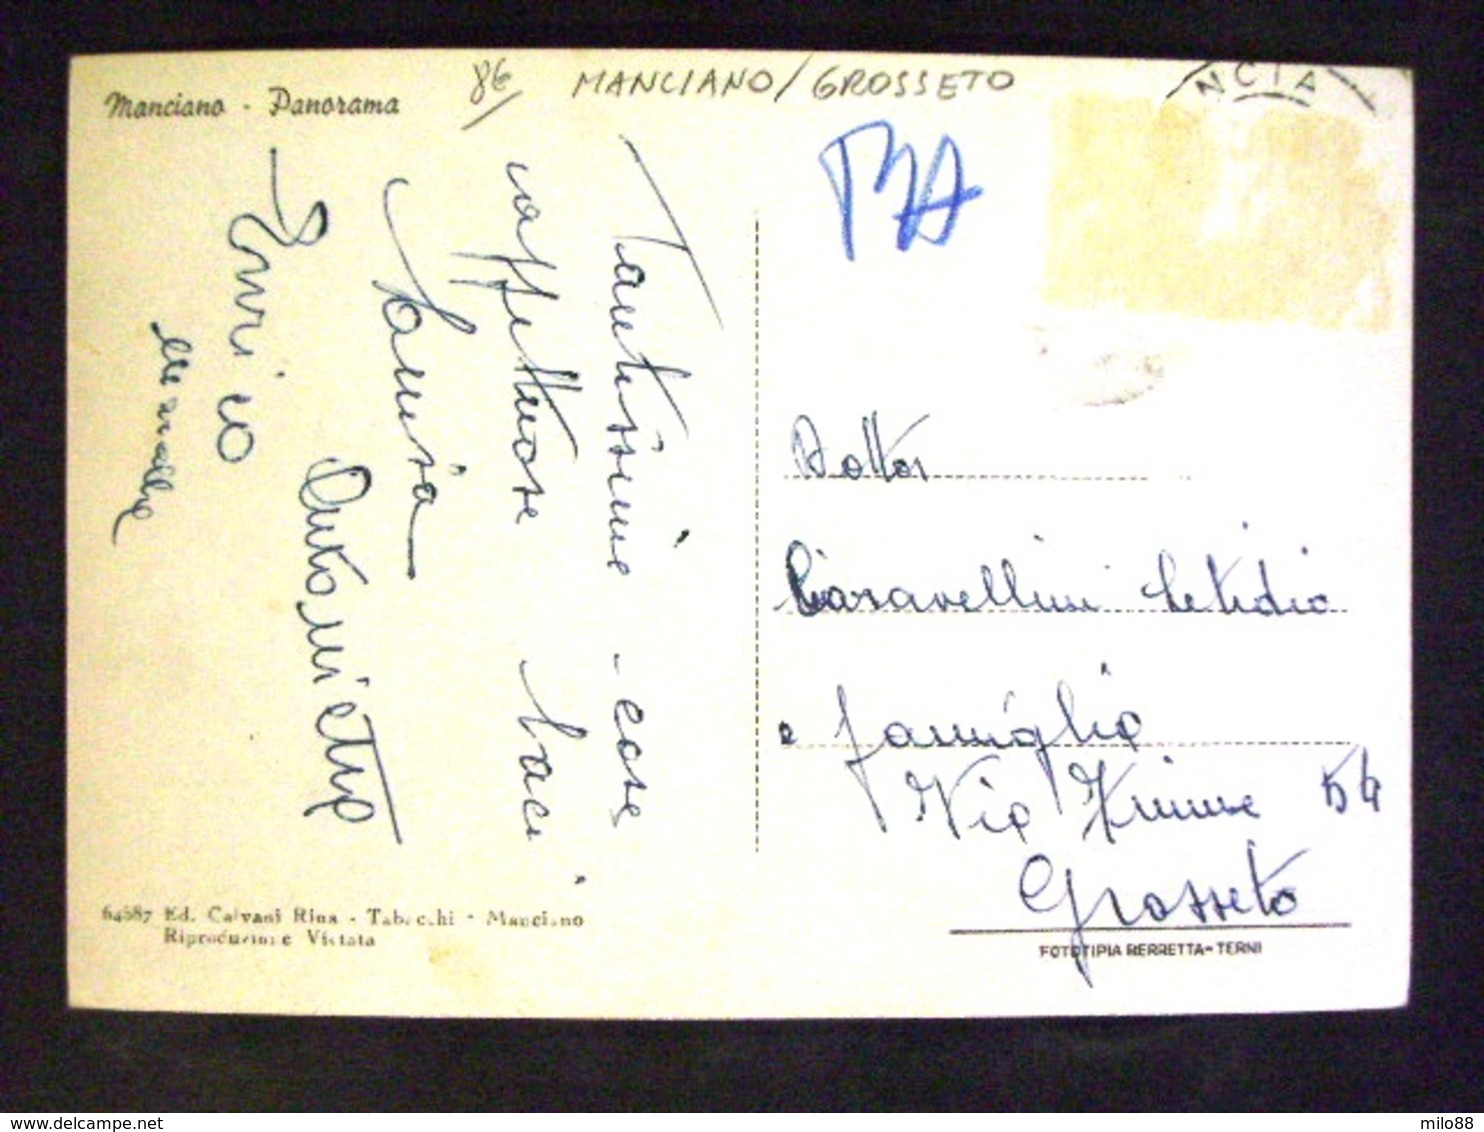 Manciano - Panorama
86/
MANCIANO/GROSSETO
NCIA
Tantissime - cose
affettuose baci
Enrico
Antonietta
Dottor
Ciaravellini Letidio
e famiglia
Via 54
Grosseto
64587 Ed. Calvani Rina - Tabacchi - Manciano
Riproduzione Vietata
FOTOTIPIA BERRETTA-TERNI
delcampe.net
milo88